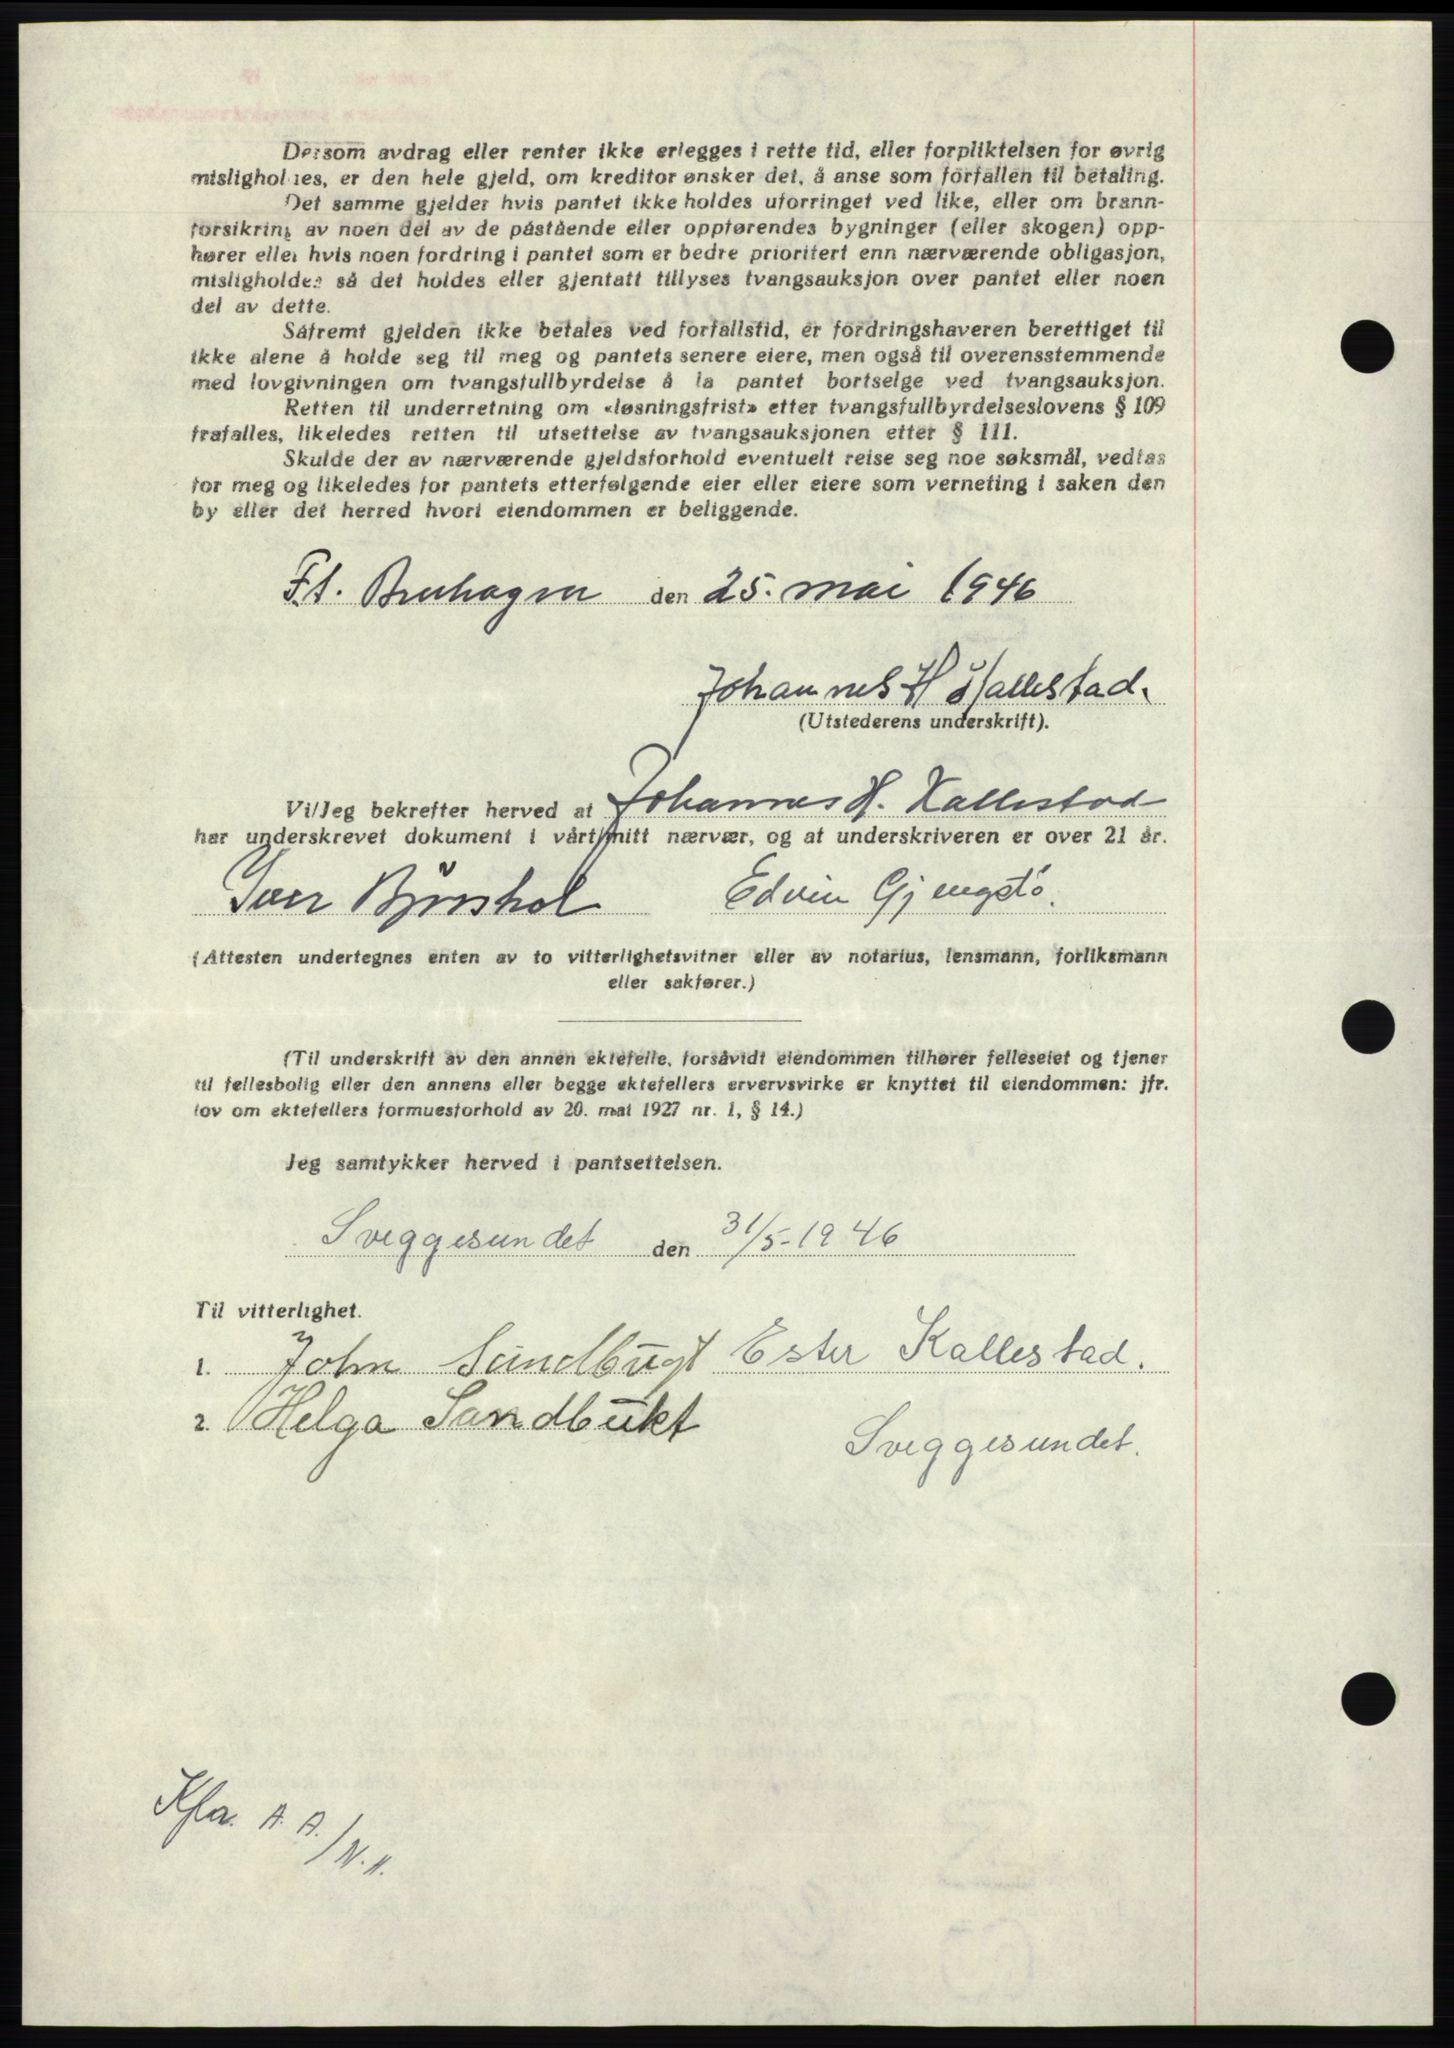 Dersom avdrag eller renter ikke erlegges i rette tid, eller forpliktelsen for øvrig
misligholdes, er den hele gjeld, om kreditor ønsker det, å anse som forfallen til betaling.
Det samme gjelder hvis pantet ikke holdes uforringet ved like, eller om brann-
forsikring av noen del av de påstående eller oppførendes bygninger (eller skogen) opp-
hører eller hvis noen fordring i pantet som er bedre prioritert enn nærværende obligasjon,
misligholdes så det holdes eller gjentatt tillyses tvangsauksjon over pantet eller noen
del av dette.
Såfremt gjelden ikke betales ved forfallstid, er fordringshaveren berettiget til
ikke alene å holde seg til meg og pantets senere eiere, men også til overensstemmende
med lovgivningen om tvangsfullbyrdelse å la pantet bortselge ved tvangsauksjon.
Retten til underretning om «løsningsfrist» etter tvangsfullbyrdelseslovens § 109
frafalles, likeledes retten til utsettelse av tvangsauksjonen etter § 111.
Skulde der av nærværende gjeldsforhold eventuelt reise seg noe søksmål, vedtas
for meg og likeledes for pantets etterfølgende eier eller eiere som verneting i saken den
by eller det herred hvori eiendommen er beliggende.
Ft. Bruhagen den 25. mai 1946
Johannes H Kallestad.
(Utstederens underskrift).
Vi/Jeg bekrefter herved at Johannes H. Kallestad
har underskrevet dokument i vårt/mitt nærvær, og at underskriveren er over 21 år.
Iver Bjørshol Edvin Gjengstø.
(Attesten undertegnes enten av to vitterlighetsvitner eller av notarius, lensmann, forliksmann
eller sakfører.)
(Til underskrift av den annen ektefelle, forsåvidt eiendommen tilhører felleseiet og tjener
til fellesbolig eller den annens eller begge ektefellers ervervsvirke er knyttet til eiendommen: jfr.
lov om ektefellers formuesforhold av 20. mai 1927 nr. 1, § 14.)
Jeg samtykker herved i pantsettelsen.
Sveggesundet den 31/5-1946
Til vitterlighet.
1. John Sandbugt Ester Kallestad.
2. Helga Sandbukt
Sveggesundet.
A. A./N. N.